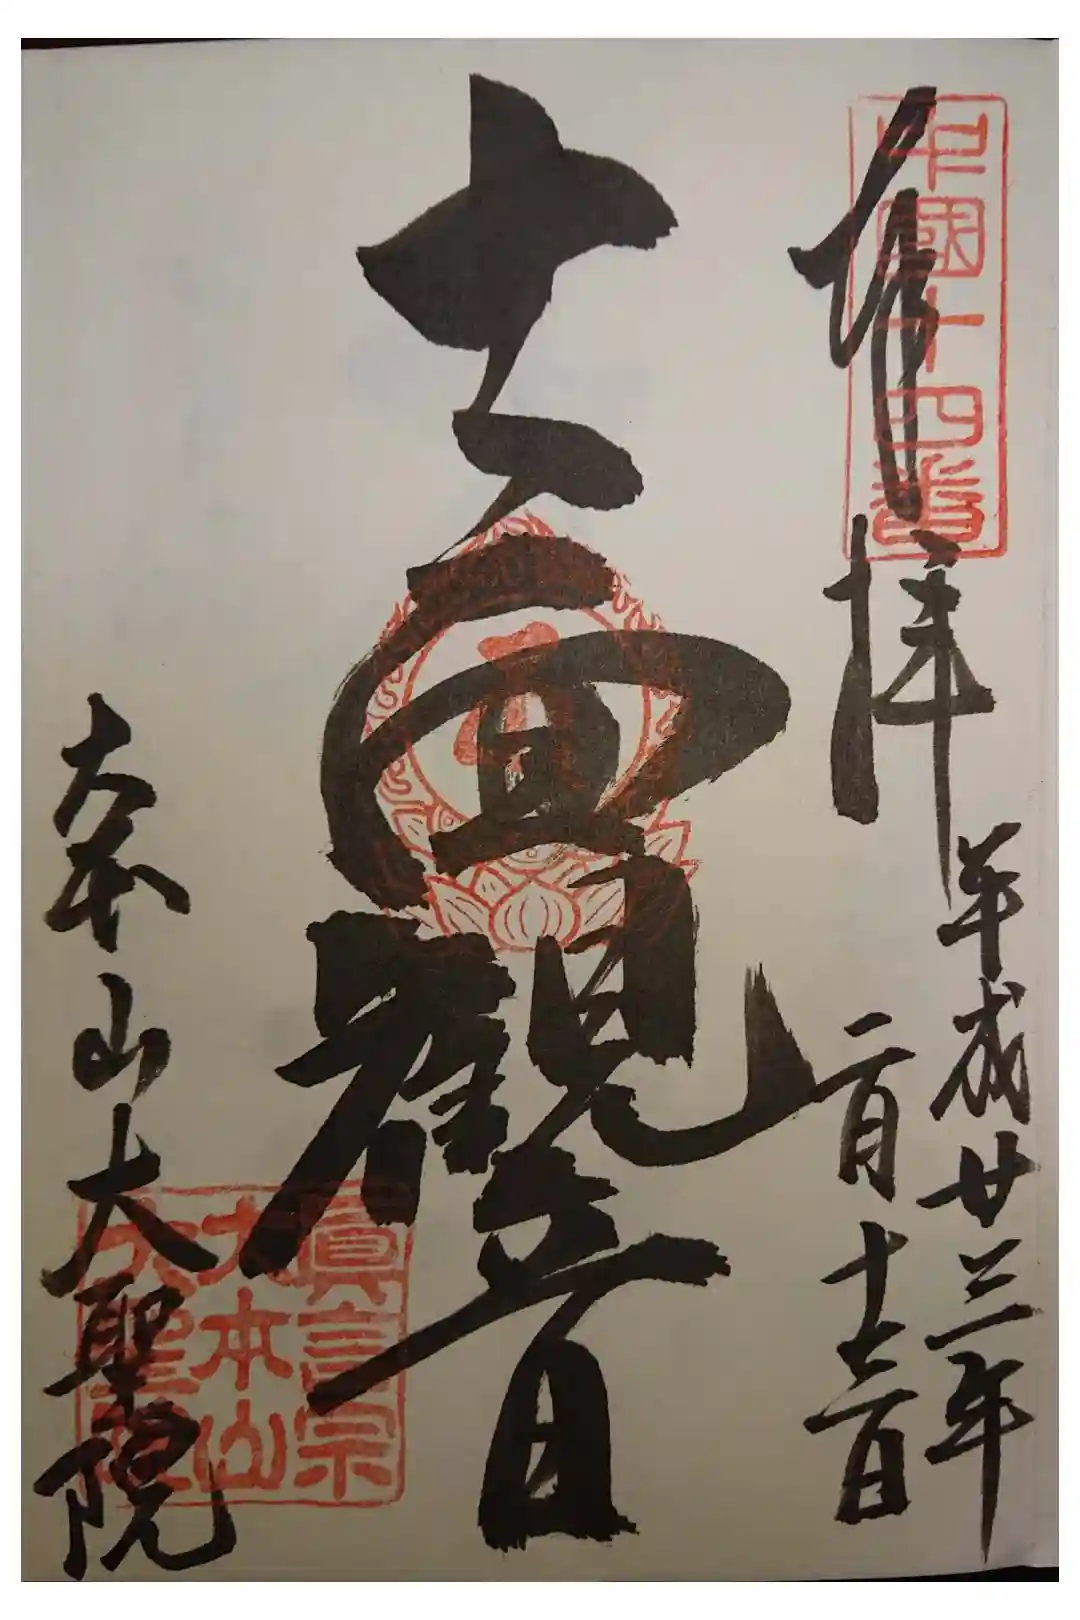 中國十四番
奉拝
平成廿三年
二月十二日
十一面觀音
大本山大聖院
眞言宗
大本山
大聖院